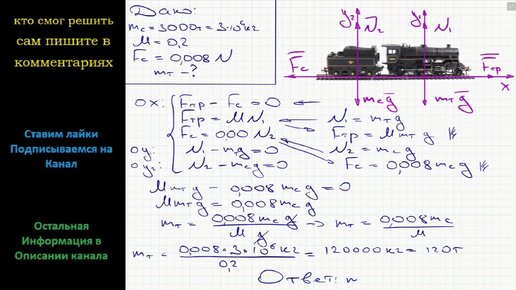 кто смог решить
сам пишите в
комментариях
Ставим лайки
Подписываемся на
Канал
Остальная
Информация в
Описании канала
Дано:
mс = 3000т = 3·10⁶кг
μ = 0,2
Fс = 0,008 N
mт - ?
y₂ N₂ y₁ N₁
Fс Fтр
x
mсg mтg
OX: Fтр - Fс = 0
Fтр = μN₁ N₁ = mтg
Fс = 0,00 N₂ Fтр = μmтg
Oy: N₁ - mтg = 0 N₂ = mсg
Oy₂: N₂ - mсg = 0 Fс = 0,008 mсg
μmтg - 0,008mсg = 0
μmтg = 0,008mсg
mт = 0,008mсg / μg => mт = 0,008mс / μ
mт = 0,008·3·10⁶кг / 0,2 = 120000кг = 120т
Ответ: n